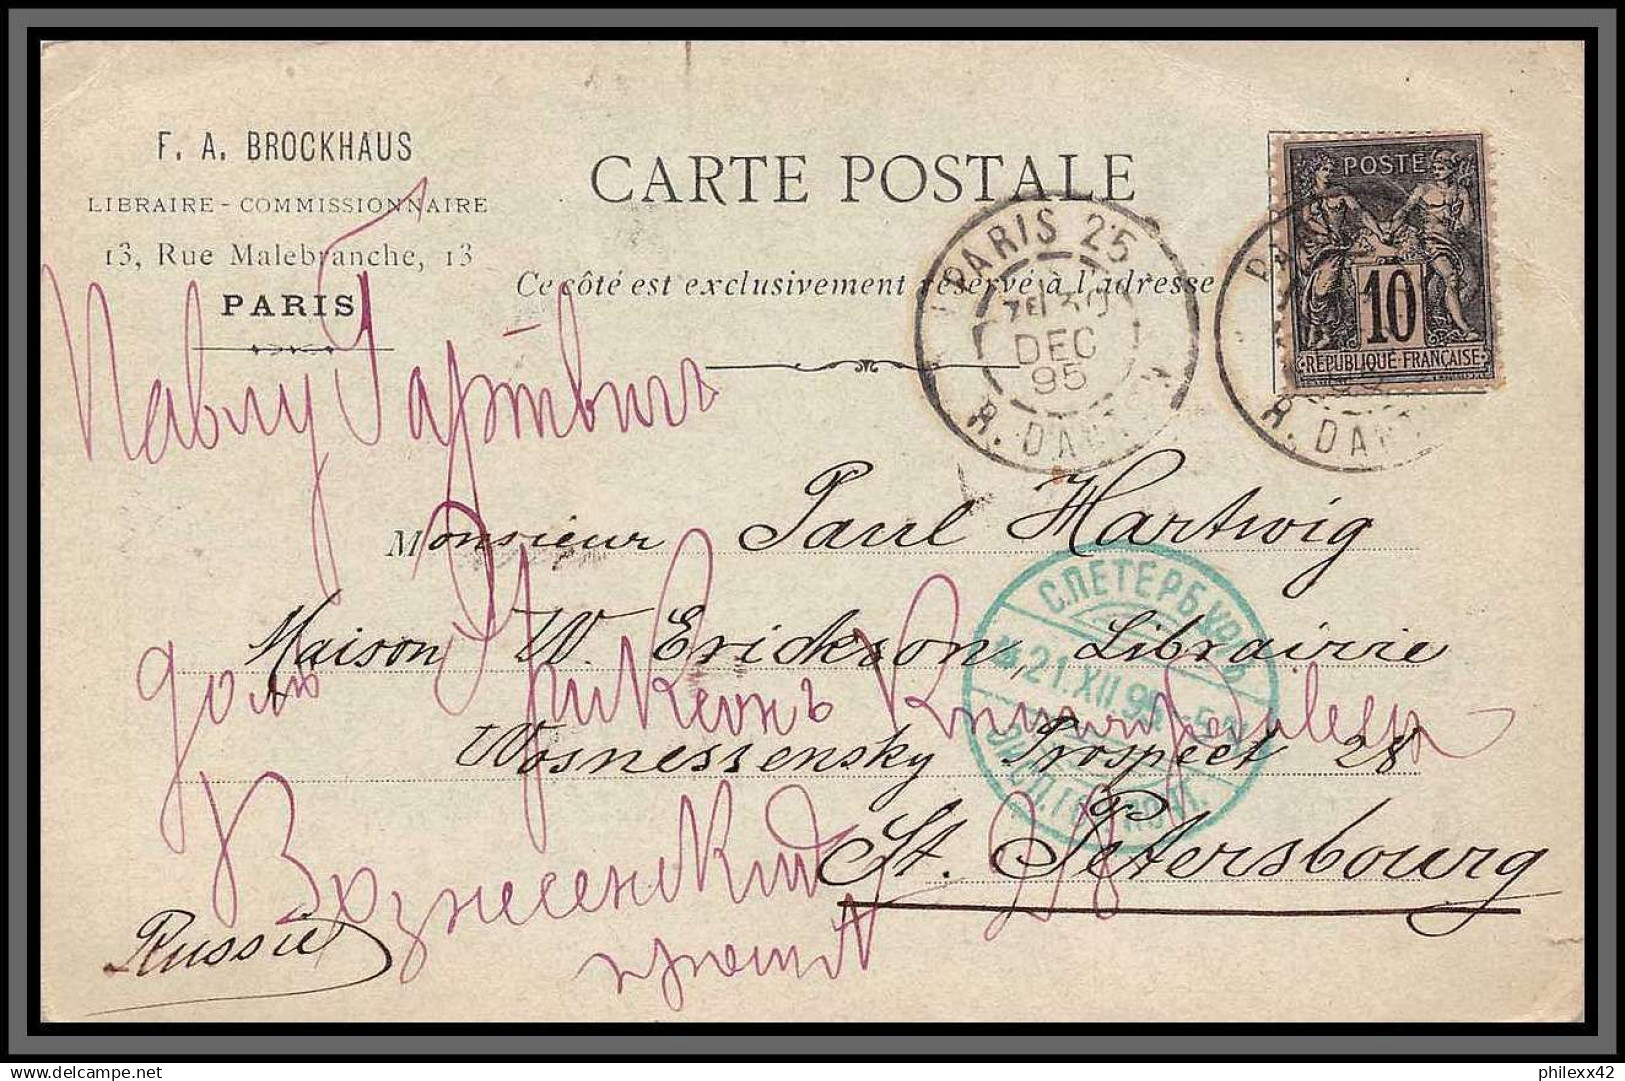 F. A. BROCKHAUS
LIBRAIRE - COMMISSIONNAIRE
13, Rue Malebranche, 13
PARIS
CARTE POSTALE
Ce côté est exclusivement réservé à l'adresse
PARIS 25
DEC
95
R. DANTON
POSTE
10
RÉPUBLIQUE FRANÇAISE
R. DANTON
Павлу Гартвигъ
Monsieur Paul Hartwig
С.ПЕТЕРБУРГЪ
21.XII.95
домъ Эриксонъ
Maison W. Erickson, Librairie
Wosnessensky Prospect 28
Вознесенский 28
St. Petersbourg
Russie
philexx42